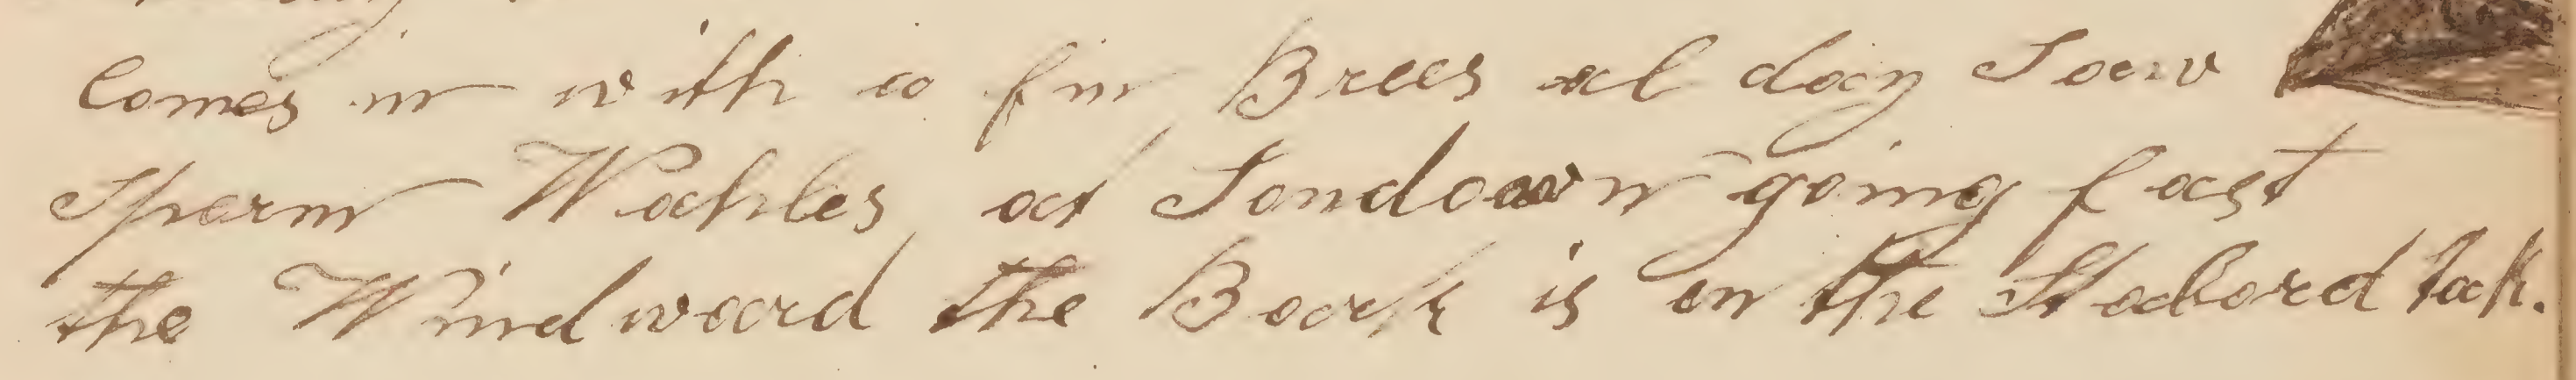 Comes in with a fin Brees al day Saw
Sparm Wahles at Sondown going fast
the Windward the Bark is on the Stabord tak.